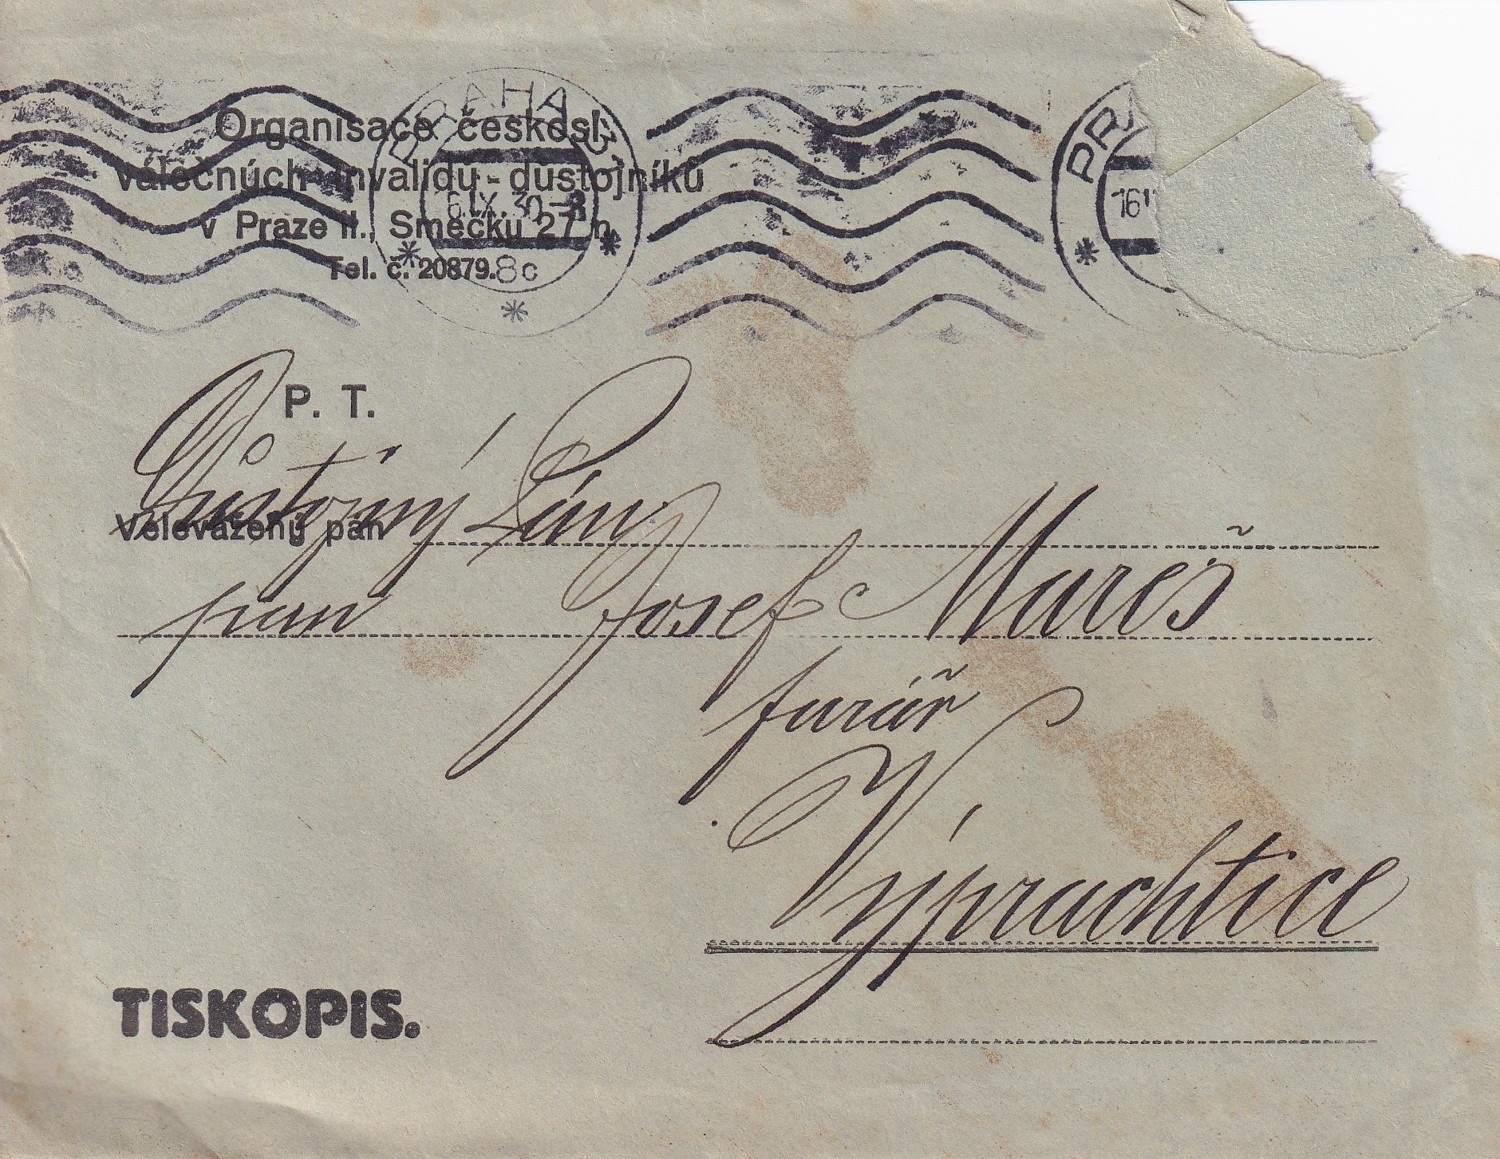 Organisace českosl.
válečných invalidů-důstojníků
v Praze II., Smečku 27 n.
Tel. č. 20879.
PRAHA
IX. 30
8c
PRA
16
P. T.
Velevážený pán
Důstojný Pán
pan Josef Mareš
farář
Výprachtice
TISKOPIS.